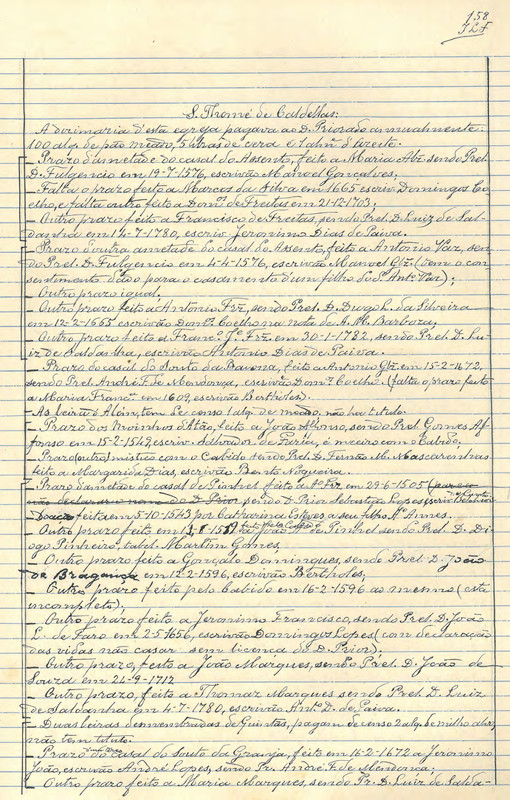 158
S. Thomé de Caldellas:
A dizimaria d'esta egreja pagava ao D. Priorado annualmente:
100 alq. de pão meado, 5 libras de cera e 1 alm. d'azeite.
— Prazo d'ametade do casal do Assento, feito a Maria Alz. sendo Prel.
D. Fulgencio em 19-7-1576, escrivão Manoel Gonçalves,
— Falta o prazo feito a Marcos da Silva em 1665 escriv. Domingos Co-
elho, e falta outro feito a Domos. de Freitas em 21-12-1703;
— Outro prazo feito a Francisco de Freitas, sendo Prel. D. Luiz de Sal-
danha em 14-7-1780, escriv. Jeronimo Dias de Paiva.
— Prazo d'outra ametade do casal do Assento, feito a Antonio Vaz, sen-
do Prel. D. Fulgencio em 4-4-1576, escrivão Manoel Glz. (vem o con-
sentimento d'ão para o casamento d'um filho do do. Anto. Vaz);
— Outro prazo igual.
— Outro prazo feito a Antonio Frz., sendo Prel. D. Diogo L. da Silveira
em 12-2-1665 escrivão Domos. Coelho na nota de A. M. Barboza;
— Outro prazo feito a Franco. Je. Frz. em 30-1-1782, sendo Prel. D. Lu-
iz de Saldanha, escrivão Antonio Dias de Paiva.
— Prazo do casal do Souto da Bavona, feito a Antonio Glz. em 15-2-1672,
sendo Prel. André F. de Mendonça, escrivão Domos. Coelho. (falta o prazo feito
a Maria Franca. em 1609, escrivão Bertholes).
— As leiras d'Além, tem de censo 1 alq. de meado, não ha titulo.
— Prazo dos Moinhos d'Atão, feito a João Afonso, sendo Prel. Gomes Af-
fonso em 15-2-1549, escriv. Salvador de Faria, é meeiro com o Cabido,
— Prazo (outro) mistico com o Cabido sendo Prel. D. Fernão M. Mascarenhas
feito a Margarida Dias, escrivão Bento Nogueira.
— Prazo d'ametade do casal de Pinhel feito a Frz. em 29-6-1505
D. Prior sendo D. Prior Sebastião Lopes
Doação feita em 5-10-1543 por Catharina Esteves a seu filho Mel. Annes.
— Outro prazo feito em João de Pinhel sendo Prel. D. Di-
ogo Pinheiro, tabel. Martim Gomes,
— Outro prazo feito a Gonçalo Domingues, sendo Prel. D. João
de Bragança em 12-2-1596, escrivão Bertholes;
— Outro prazo feito pelo Cabido em 16-2-1596 ao mesmo (está
incompleto);
— Outro prazo feito a Jeronimo Francisco, sendo Prel. D. João
L. de Faro em 2-5-1656, escrivão Domingos Lopes (com declaração
das vidas não casar sem licença do D. Prior);
— Outro prazo, feito a João Marques, sendo Prel. D. João de
Souza em 24-9-1712
— Outro prazo, feito a Thomaz Marques sendo Prel. D. Luiz
de Saldanha em 4-7-1780, escrivão Anto. D. de Paiva.
— Duas leiras desmembradas de Quintãs, pagam de censo 2 alq. de milho alvo,
não tem titulo.
— Prazo do casal do Souto da Granja, feito em 15-2-1672 a Jeronimo
João, escrivão André Lopes, sendo Pr. André F. de Mendonça;
— Outro prazo feito a Maria Marques, sendo Pr. D. Luiz de Salda-